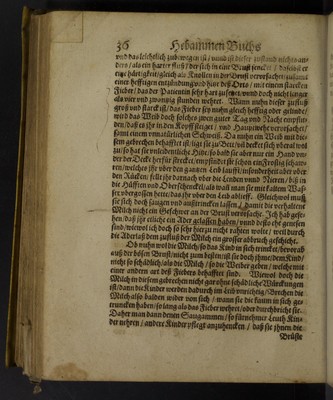 36 Hebammen Buchs
vnd das leichtlich zubewegen ist / vnnd ist dieser zustand nichts an-
ders / als ein harter fluß / der sich in eine Brust sencket / daselbst er
eine härtigkeit / gleich als Knollen in der Brust verursachet / zusampt
einer hefftigen entzündung vnd hitz deß Orts / mit einem starcken
Fieber / das der Patientin sehr hart zusetzet / vnnd doch nicht länger
als vier vnd zwantzig stunden wehret. Wann nuhn dieser zufluß
groß vnd starck ist / das Fieber sey nuhn gleich hefftig oder gelinde /
wird das Weib doch solches zwen gantze Tag vnd Nacht empfin-
den / daß es ihr in den Kopff steiget / vnd Hauptwehe verursachet /
sampt einem vnnatürlichen Schweiß. Da nuhn ein Weib mit die-
sem gebrechen behafftet ist / ligt sie zu Bett / vnd decket sich vberal wol
zu / so hat sie vnleidentliche Hitze / so bald sie aber nur ein Hand vn-
der der Decke herfür strecket / empfindet sie schon ein frostig schaw-
ern / welches ihr vber den gantzen Leib laufft / insonderheit aber vber
den Rücken / felt ihr darnach vber die Lenden vnnd Nieren / biß in
die Hüfften vnd Oberschenckel / als wañ man sie mit kaltem Was-
ser vbergossen hette / das ihr vber den Leib ablieff. Gleichwol muß
sie sich doch saugen vnd außtrincken lassen / damit die verhaltene
Milch nicht ein Geschwer an der Brust verursache. Ich hab gese-
hen / daß ihr etliche ein Ader gelassen haben / vnnd deß so eh genesen
sind / wiewol ich doch so sehr hierzu nicht rahten wolte / weil durch
die Aderläß dem zufluß der Milch ein grosser abbruch geschicht.
Ob nuhn wol die Milch / so das Kind in sich trincket / bevorab
auß der bösen Brust / nicht zum besten / ist sie doch ihme / dem Kind /
nicht so schädlich / als die Milch / so die Weiber geben / welche mit
einer andern art deß Fiebers behafftet sind. Wiewol doch die
Milch in diesem gebrechen nicht gar ohne schädliche Würckungen
ist / dann die Kinder werden dadurch im Leib vnrichtig / Brechen die
Milch also balden wider von sich / wann sie die kaum in sich ge-
truncken haben / so lang als das Fieber wehret / oder durchbricht sie.
Daher man dann denen Säugammen / so fürnehmer Leuth Kin-
der nehren / andere Kinder pflegt anzuhencken / daß sie jhnen die
Brüste